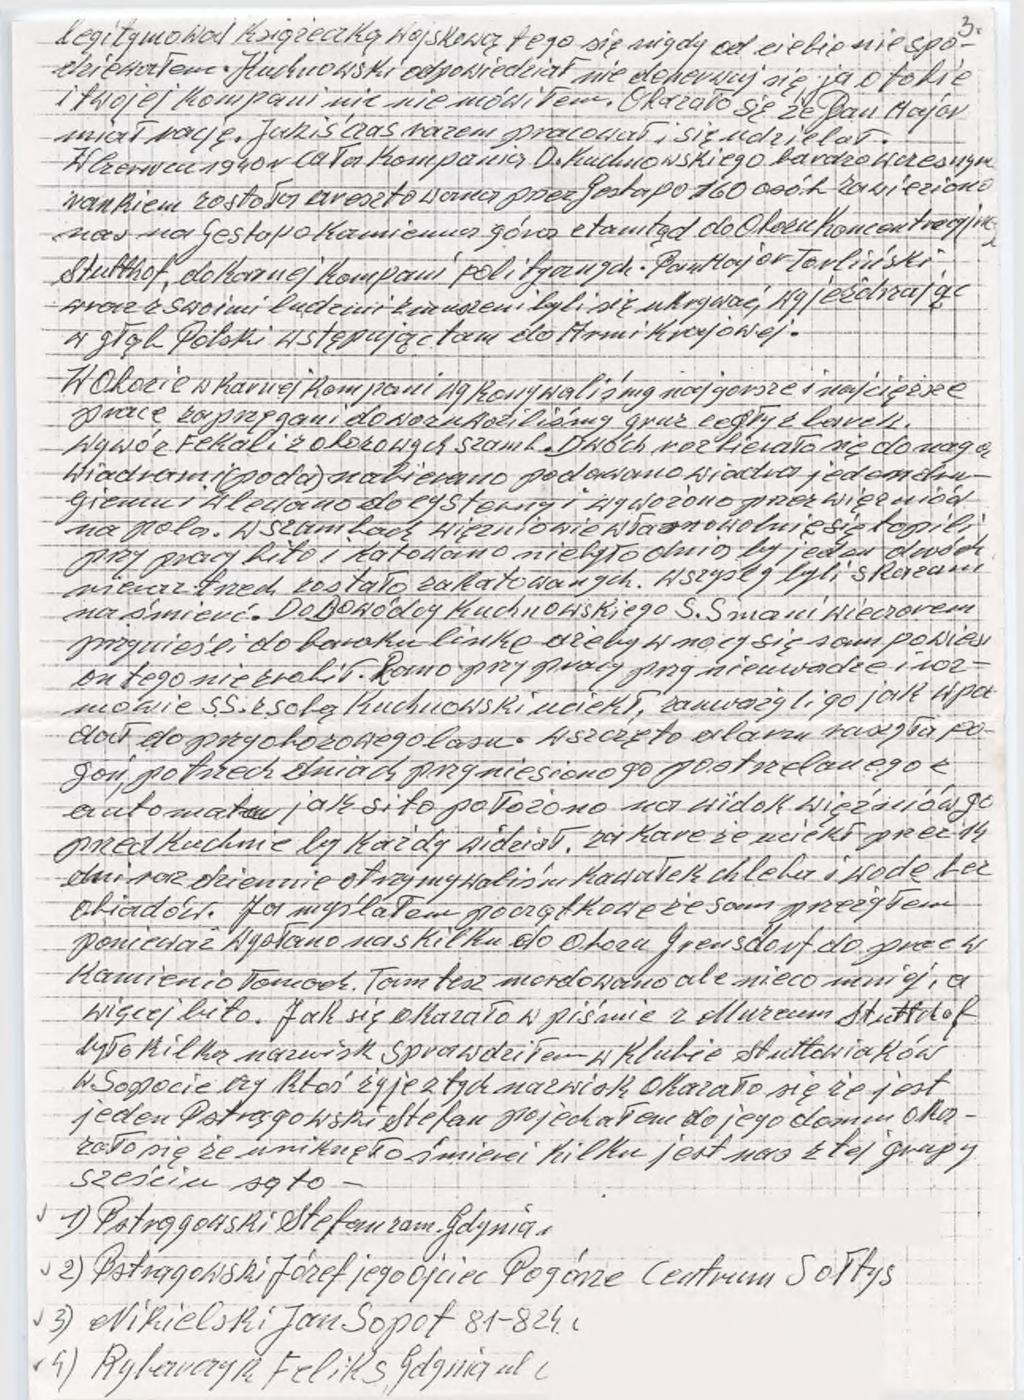 3.
legitymował Książeczką Wojskową tego się nigdy od ciebie nie spo-
dziewałem. Kuchnowski odpowiedział nie denerwuj się ja o tobie
i twojej Kompani nic nie mówiłem. Okazało się że Pan Major
miał rację. Jakiś czas razem pracował i się udzielał.
W czerwcu 1940r cała Kompania D. Kuchnowskiego bardzo wczesnym
rankiem została aresztowana przez Gestapo 160 osób zawieziono
nas na Gestapo Kamienna góra stamtąd do Obozu Koncentracyjne
Stutthof, do Karnej Kompani politycznych. Pan Major Torliński
wraz z swoimi ludźmi zmuszeni byli się ukrywać, wyjeżdżając
w głąb Polski wstępując tam do Armi Krajowej.
W Obozie w Karnej Kompani wykonywaliśmy najgorsze i najcięższe
prace zaprzęgani do wozu woziliśmy gruz cegły z barek.
wywóz Fekali z obozowych szamb. Dwóch rozbierało się do naga
wiadrami (poda) nabierano podawano wiadra jeden dru-
giemu i wlewano do cysterny i wywożono przez więźniów
na pola. w szambach więźniowie własnowolnie się topili
przy pracy bito i katowano nie było dnia by jeden dwóch
nieraz trzech zostało zakatowanych. wszyscy byli skazani
na śmierć. Do Dowódcy Kuchnowskiego S.Smani wieczorem
przynieśli do baraku linkę ażeby w nocy się sam powiesił
on tego nie zrobił. Rano przy pracy przy nieuwadze i roz-
mowie S.S. z sobą Kuchnowski uciekł, zauważyli go jak wpa
dał do przyobozowego lasu. wszczęto alarm ruszyła po-
goń, po trzech dniach przyniesiono go postrzelanego z
automatu jak sito położono na widok więźniów go
przed Kuchnie by Każdy widział. za Karę że uciekł przez 14
dni raz dziennie otrzymywaliśm Kawałek chleba i wodę bez
obiadów. Ja myślałem początkowo że sam przeżyłem
ponieważ wysłano nas kilku do Obozu Grensdorf do prac w
Kamienio łomach. Tam też mordowano ale nieco mniej, a
więcej bito. Jak się okazało w piśmie z Muzeum Stutthof
było kilka nazwisk sprawdziłem w Klubie Stuttowiaków
w Sopocie czy Ktoś żyje z tych nazwisk okazało się że jest
jeden Pstrągowski Stefan pojechałem do jego domu oka-
zało się że uniknęło śmierci kilku jest nas z tej grupy
sześciu są to -
1) Pstrągowski Stefan zam. Gdynia.
2) Pstrągowski Józef jego ojciec Pogórze Centrum Sołtys
3) Nikielski Jan Sopot 81-824.
4) Rybarczyk Feliks, Gdynia ul